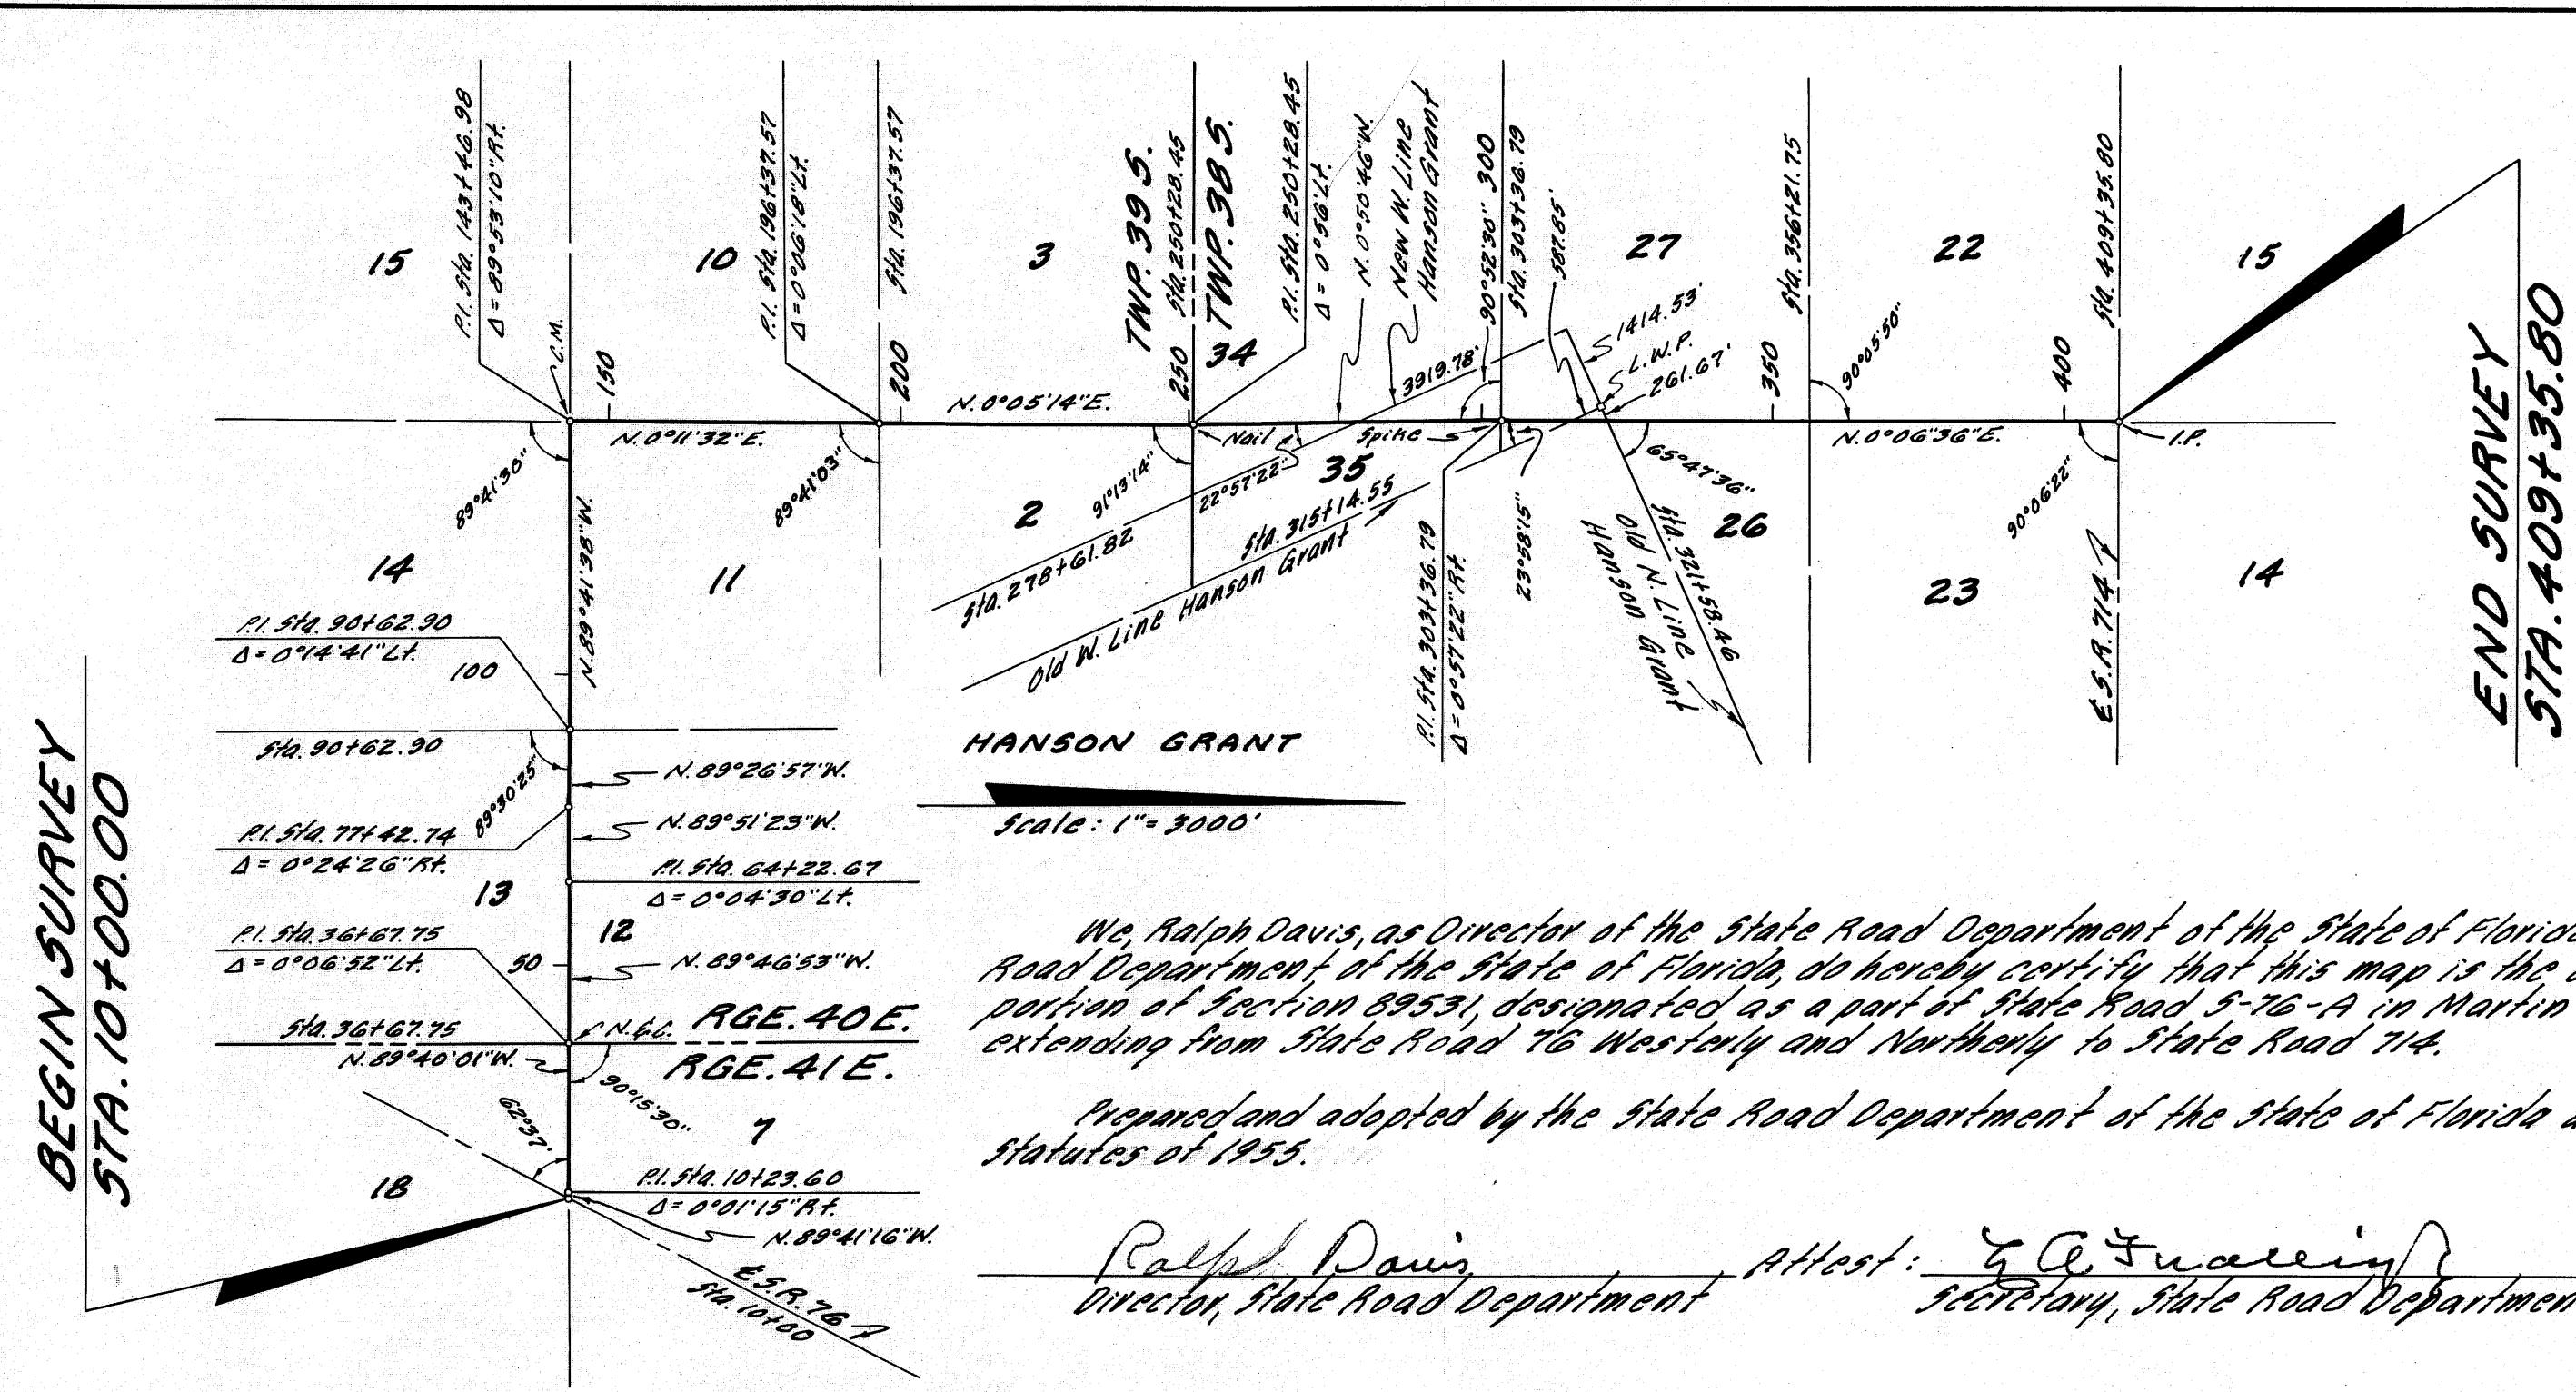 BEGIN SURVEY
STA. 10+00.00
15
P.I. Sta. 143+46.98
Δ = 89°53'10" Rt.
C.M.
150
10
P.I. Sta. 196+37.57
Δ = 0°06'18" Lt.
Sta. 196+37.57
200
3
TWP. 39 S.
Sta. 250+28.45
TWP. 38 S.
250
34
P.I. Sta. 250+28.45
Δ = 0°56' Lt.
N. 0°50'46" W.
New W. Line
Hanson Grant
90°52'30"
300
Sta. 303+36.79
587.85'
27
3919.78'
1414.53'
L.W.P.
261.67'
Sta. 356+21.75
350
90°05'50"
22
400
Sta. 409+35.80
15
END SURVEY
STA. 409+35.80
N. 0°11'32" E.
N. 0°05'14" E.
Nail
Spike
N. 0°06'36" E.
I.P.
89°41'30"
N. 89°41'38" W.
89°41'03"
2
91°13'14"
22°57'22"
35
65°47'36"
90°06'22"
14
11
Sta. 278+61.82
Sta. 315+14.55
Old W. Line Hanson Grant
P.I. Sta. 303+36.79
Δ = 0°57'22" Rt.
23°58'15"
Sta. 321+58.46
Old N. Line
Hanson Grant
26
23
℄ S.R. 714
14
P.I. Sta. 90+62.90
Δ = 0°14'41" Lt.
100
Sta. 90+62.90
89°30'25"
N. 89°26'57" W.
HANSON GRANT
Scale: 1" = 3000'
P.I. Sta. 77+42.74
Δ = 0°24'26" Rt.
N. 89°51'23" W.
P.I. Sta. 64+22.67
Δ = 0°04'30" Lt.
13
12
P.I. Sta. 36+67.75
Δ = 0°06'52" Lt.
50
N. 89°46'53" W.
Sta. 36+67.75
N.&C.
RGE. 40 E.
N. 89°40'01" W.
RGE. 41 E.
90°15'30"
62°37'
7
18
P.I. Sta. 10+23.60
Δ = 0°01'15" Rt.
N. 89°41'16" W.
℄ S.R. 76
Sta. 10+00
We, Ralph Davis, as Director of the State Road Department of the State of Florida
Road Department, of the State of Florida, do hereby certify that this map is the
portion of Section 89531, designated as a part of State Road S-76-A in Martin
extending from State Road 76 Westerly and Northerly to State Road 714.
Prepared and adopted by the State Road Department of the State of Florida
Statutes of 1955.
Ralph Davis
Director, State Road Department
Attest:
Secretary, State Road Departmen